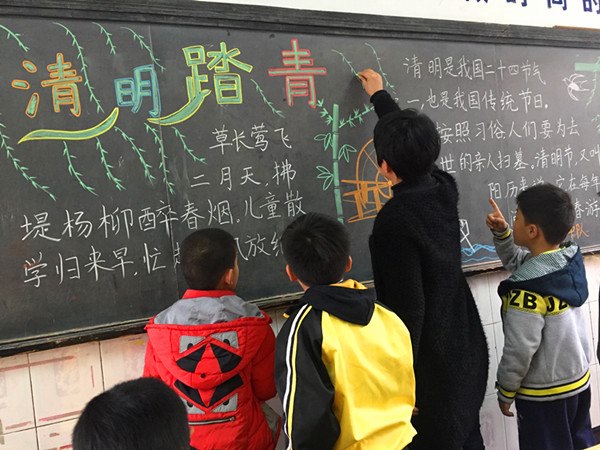 清明踏青
草长莺飞
二月天,拂
堤杨柳醉春烟,儿童散
学归来早,忙
风放
清明是我国二十四节气
一,也是我国传统节日。
按照习俗人们要为去
世的亲人扫墓,清明节,又叫
阳
在每年
春游
ZB JZ